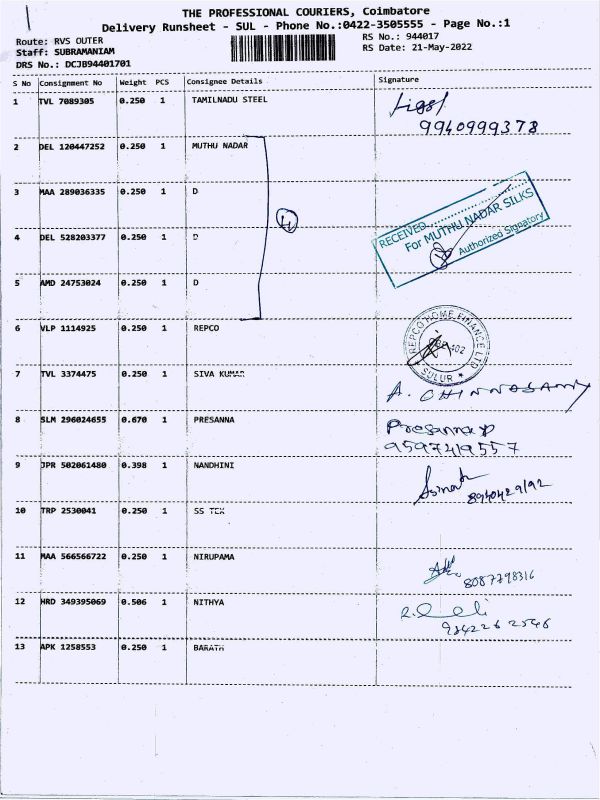 THE PROFESSIONAL COURIERS, Coimbatore
Delivery Runsheet - SUL - Phone No.:0422-3505555 - Page No.:1
Route: RVS OUTER
RS No.: 944017
Staff: SUBRAMANIAM
RS Date: 21-May-2022
DRS No.: DCJB94401701
S No Consignment No Weight PCS Consignee Details Signature
1 TVL 7089305 0.250 1 TAMILNADU STEEL
9940999378
2 DEL 120447252 0.250 1 MUTHU NADAR
3 MAA 289036335 0.250 1 D
4
RECEIVED
For MUTHU NADAR SILKS
Authorized Signatory
4 DEL 528203377 0.250 1 D
5 AMD 24753024 0.250 1 D
6 VLP 1114925 0.250 1 REPCO
REPCO HOME FINANCE LTD
402
SULUR
7 TVL 3374475 0.250 1 SIVA KUMAR
A. CHINNASAMY
8 SLM 296024655 0.670 1 PRESANNA
Presanna P
9597419557
9 JPR 502061480 0.398 1 NANDHINI
10 TRP 2530041 0.250 1 SS TEX
11 MAA 566566722 0.250 1 NIRUPAMA
8087798316
12 HRD 349395069 0.506 1 NITHYA
13 APK 1258553 0.250 1 BARATH